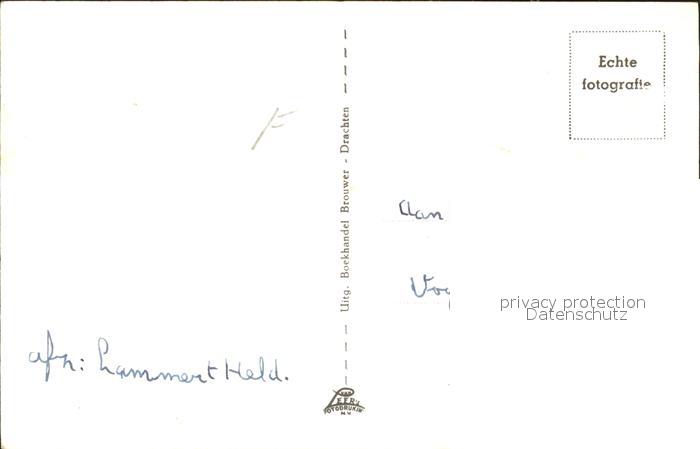 Echte
fotografie
F
Uitg. Boekhandel Brouwer - Drachten
Aan
privacy protection
Datenschutz
afz: Lammert Held.
VAN
LEER'S
FOTODRUKIN
N.V.